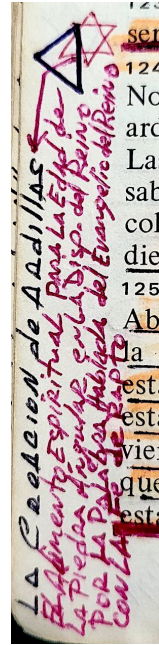 La Creacion de Ardillas
El Alimento Espiritual Para La Edad de
La Piedra Angular en la Dispe del Reino
Por La Palabra Hablada del Evangelio del Reino
Con La Fe de Rapto
ser
124
No
ard
La
sab
col
die
125
Ab
la
est
esta
vier
que
esta